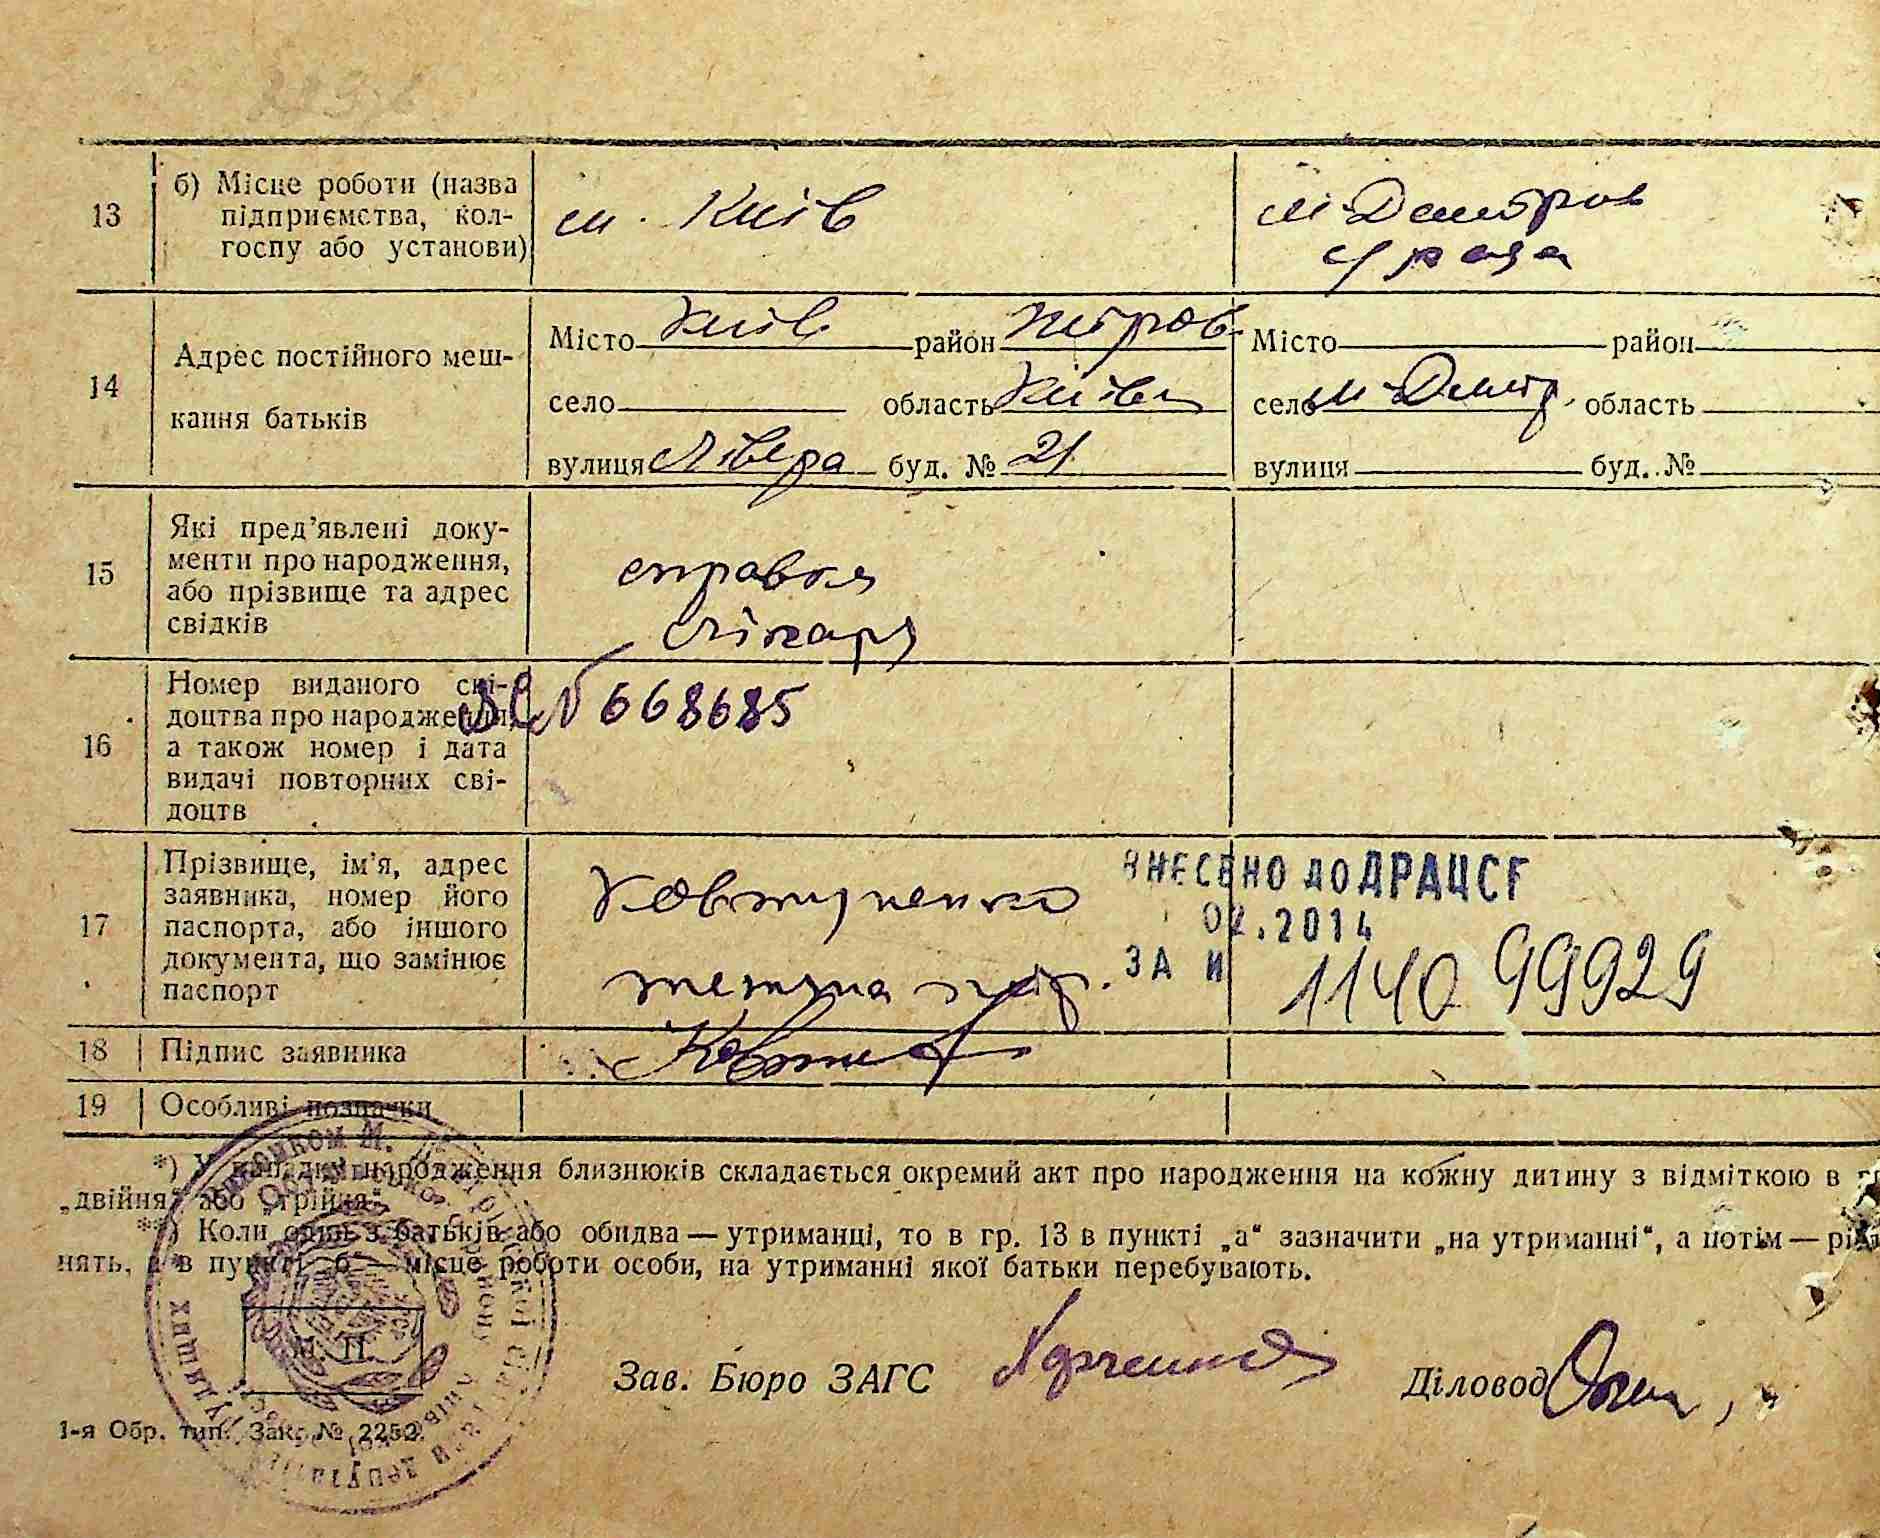 13
б) Місце роботи (назва
підприємства, кол-
госпу або установи)
м. Київ
м-Дмитров
14
Адрес постійного меш-
кання батьків
Місто Київ район Петров
село область Київ
вулиця буд. № 21
Місто район
село м-Дмитр. область
вулиця буд. №
15
Які пред’явлені доку-
менти про народження,
або прізвище та адрес
свідків
справка
лікаря
16
Номер виданого сві-
доцтва про народження,
а також номер і дата
видачі повторних сві-
доцтв
№ 668685
17
Прізвище, ім’я, адрес
заявника, номер його
паспорта, або іншого
документа, що замінює
паспорт
Ковтуненко
ВНЕСЕНО ДО ДРАЦСГ
02.2014
ЗА №
1140 99929
18
Підпис заявника
19
Особливі позначки
*) У випадку народження близнюків складається окремий акт про народження на кожну дитину з відміткою в
„двійня“ або „трійня“.
**) Коли один з батьків або обидва — утриманці, то в гр. 13 в пункті „а“ зазначити „на утриманні“, а потім —
нять, а в пункті „б“ — місце роботи особи, на утриманні якої батьки перебувають.
М. П.
Зав. Бюро ЗАГС
Діловод
1-я Обр. тип. Зак. № 2252.